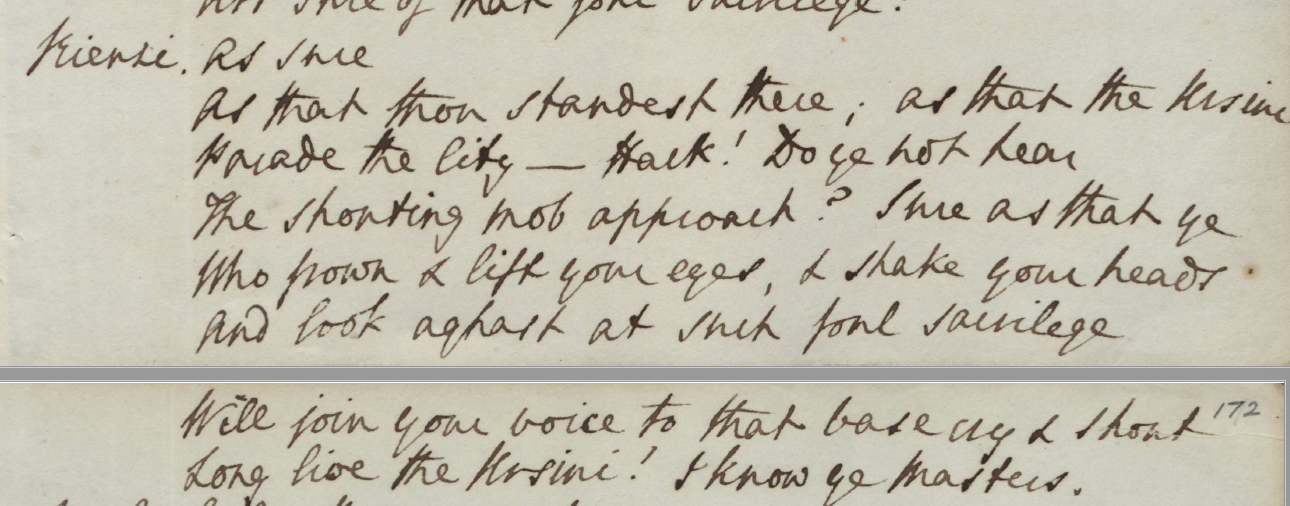 not sure of that foul sacrilege?
Rienzi. As sure
As that thou standest there; as that the Ursini
Parade the City — Hark! Do ye not hear
The shouting mob approach? Sure as that ye
Who frown & lift your eyes, & shake your heads
And look aghast at such foul sacrilege
172
Will join your voice to that base cry & shout
Long live the Ursini! I know ye Masters.